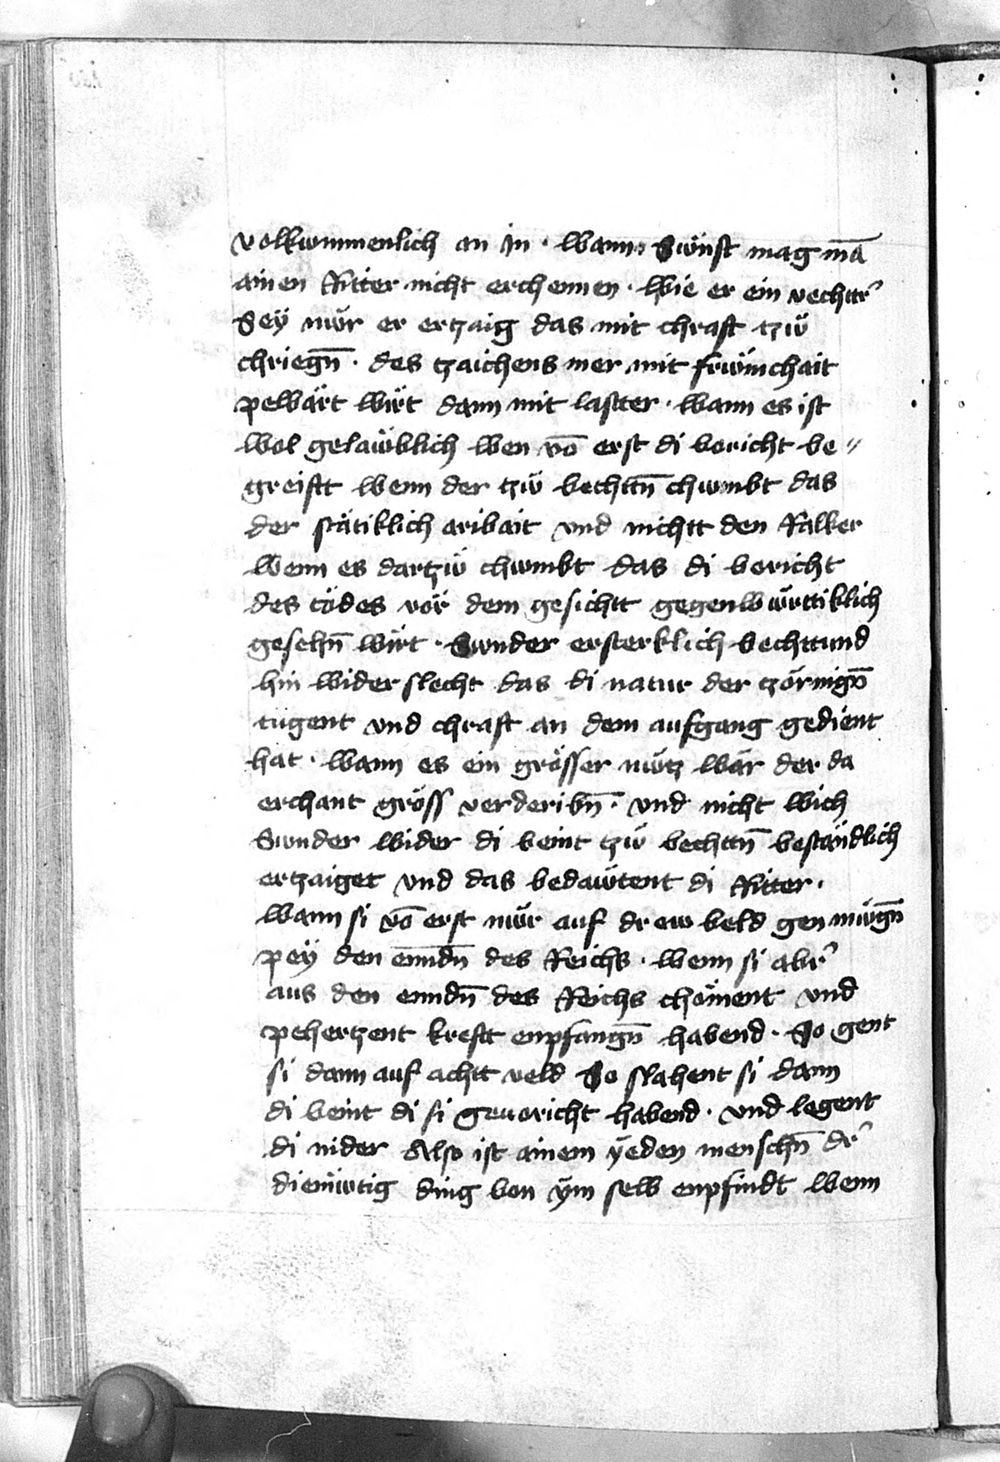 volkummenlich an jn · wann Swnst mag mā
ainen Ritter nicht erchennen · wie er ein vechtr̉
Seÿ nwr er ertzaig das mit chraft tzw̎
chriegn̄ · des tzaichens mer mit frwmchait
pewärt wirt dann mit laster · wann es ist
wol gelaẅblich wen vō erst di voricht be〃
greift wenn der tzẅ vechttn̄ chwmbt das
der stätiklich aribait vnd nichtt den Ralker
wenn es dartzẅ chwmbt das di voricht
des tödes vör dem gesichtt gegenwẅrttiklich
gesehn̄ wirt · Swnder ersterklich vechttund
hin wider slecht das di natur der tzörnign̄
tügent vnd chraft an dem aufgang gedient
hat · wann es ein grösser nẅtz wär der da
erchant gröss verderibn̄ · vnd nicht wich
Swnder wider di veint tzẅ vechttn̄ beständlich
ertzaiget vnd das bedaẅtent di Ritter ·
wann si vō erst nẅr auf drew veld gen mẅgn̄
peÿ den enndn̄ des Reichs · wenn si abr̉
aus den enndn̄ des Reichs chöment vnd
pehertzent kreftt enpfangn̄ habend · So gent
si dann auf achtt veld So slahent si dann
di veint di si gevoricht habend · vnd legent
di nider Also ist ainem ÿeden menschn̄ dr̉
diemẅtig ding von ÿm selb enpfindt wenn